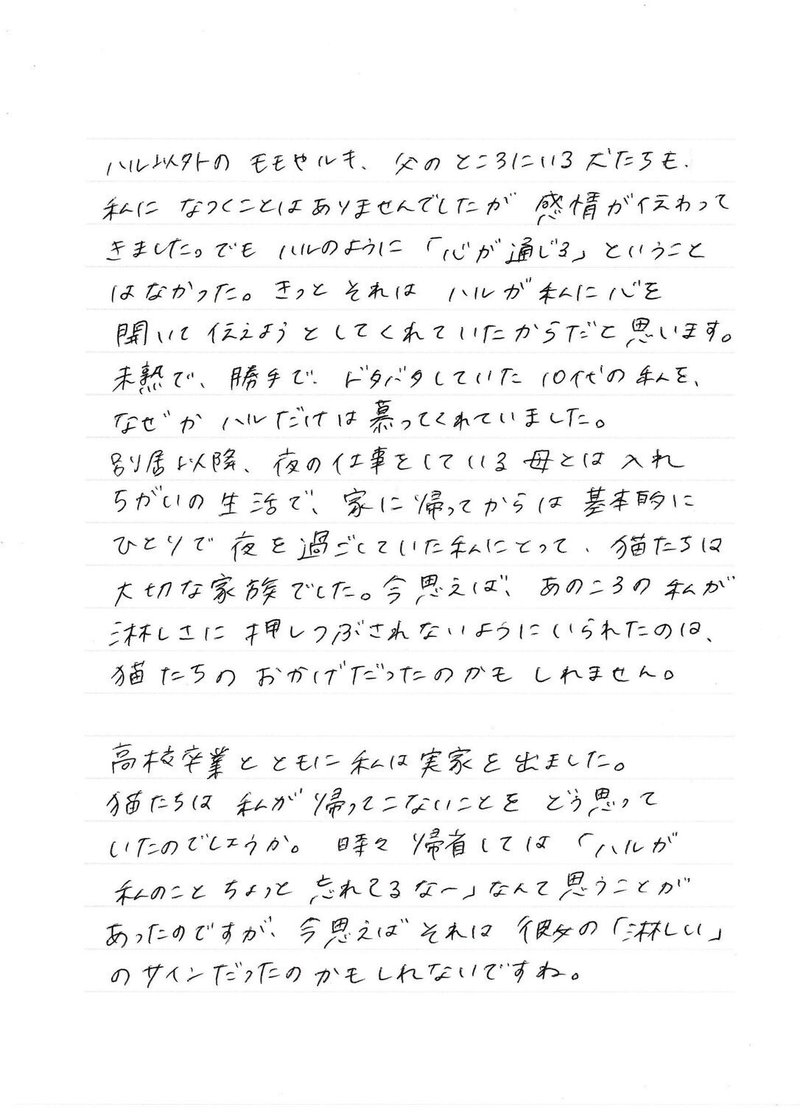 ハル以外の モモやルキ、父のところにいる犬たちも、
私に なつくことはありませんでしたが 感情が伝わって
きました。でも ハルのように「心が通じる」ということ
はなかった。きっと それは ハルが私に心を
開いて伝えようとしてくれていたからだと思います。
未熟で、勝手で、ドタバタしていた10代の私を、
なぜか ハルだけは慕ってくれていました。
別居以降、夜の仕事をしている母とは入れ
ちがいの生活で、家に帰ってからは 基本的に
ひとりで夜を過ごしていた私にとって、猫たちは
大切な家族でした。今思えば、あのころの私が
淋しさに押しつぶされないようにいられたのは、
猫たちのおかげだったのかもしれません。
高校卒業とともに私は実家を出ました。
猫たちは 私が帰ってこないことを どう思って
いたのでしょうか。時々帰省しては「ハルが
私のこと ちょっと 忘れてるなー」なんて思うことが
あったのですが、今思えばそれは 彼女の「淋しい」
のサインだったのかもしれないですね。